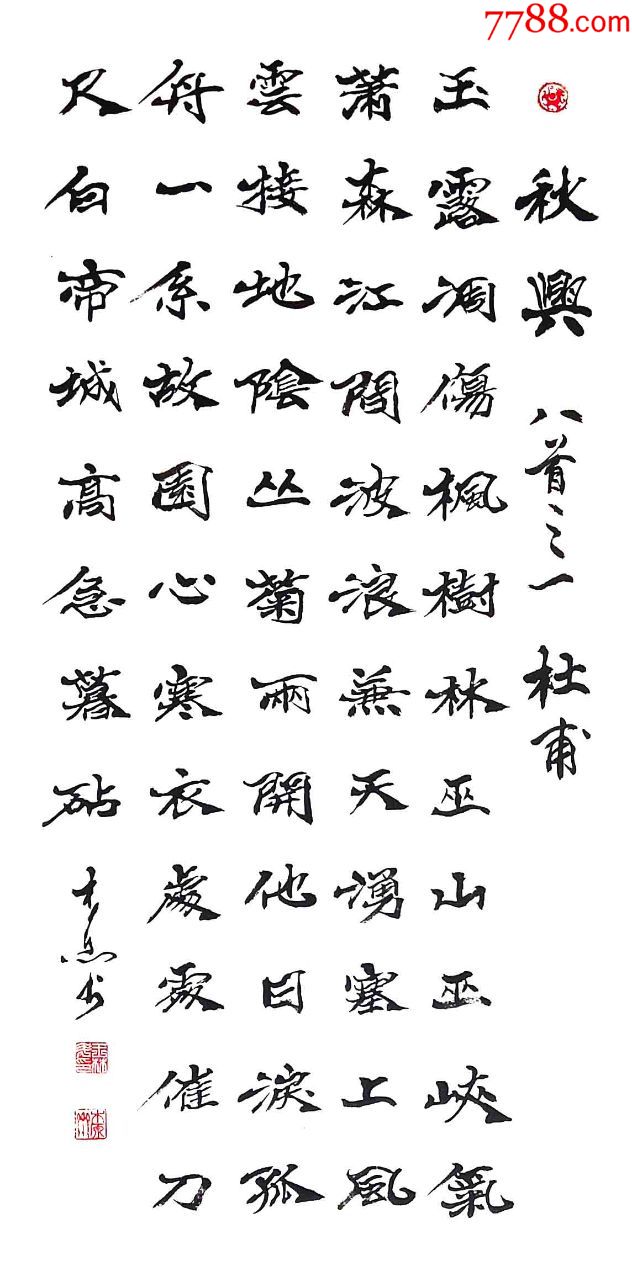 7788.com
秋興 八首之一 杜甫
玉露凋傷楓樹林巫山巫峽氣
蕭森江間波浪兼天湧塞上風
雲接地陰丛菊兩開他日淚孤
舟一系故園心寒衣處處催刀
尺白帝城高急暮砧
书